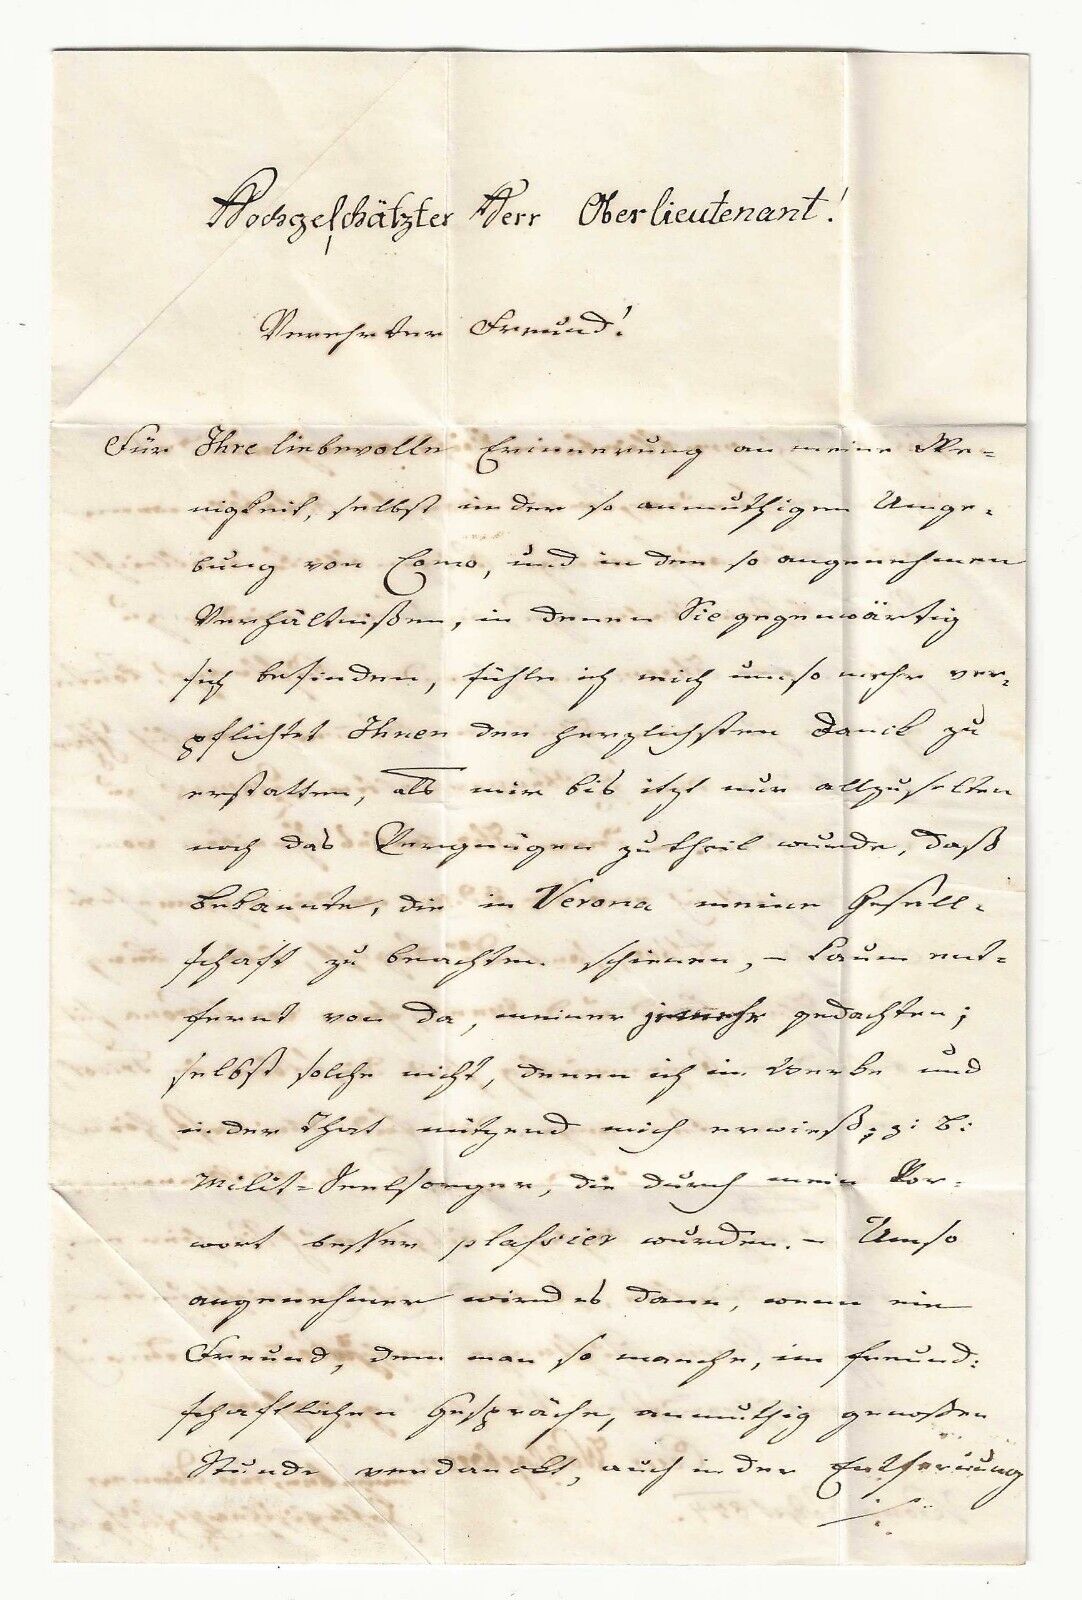 Hochgeschätzter Herr Oberlieutenant!
Verehrter Freund!
Für Ihre liebevolle Erinnerung an meine We-
nigkeit, selbst in der so anmuthigen Umge-
bung von Como, und in den so angenehmen
Verhältnißen, in denen Sie gegenwärtig
sich befinden, fühle ich mich umso mehr ver-
pflichtet Ihnen den herzlichsten Danck zu
erstatten, als mir bis itzt nur allzuselten
noch das Vergnügen zu theil wurde, daß
Bekannte, die in Verona meine Gesell-
schaft zu beachten schienen, – kaum ent-
fernt von da, meiner gedachten;
selbst solche nicht, denen ich im Werke und
in der That nützend mich erwieß, z: B:
Milit=Seelsorger, die durch mein Vor-
wort besser plassier wurden. – Umso
angenehmer wird es dann, wenn ein
Freund, dem man so manche, im freund-
schaftlichen Gespräche, anmuthig genoßen
Stunde verdanckt, auch in der Entfernung
./.